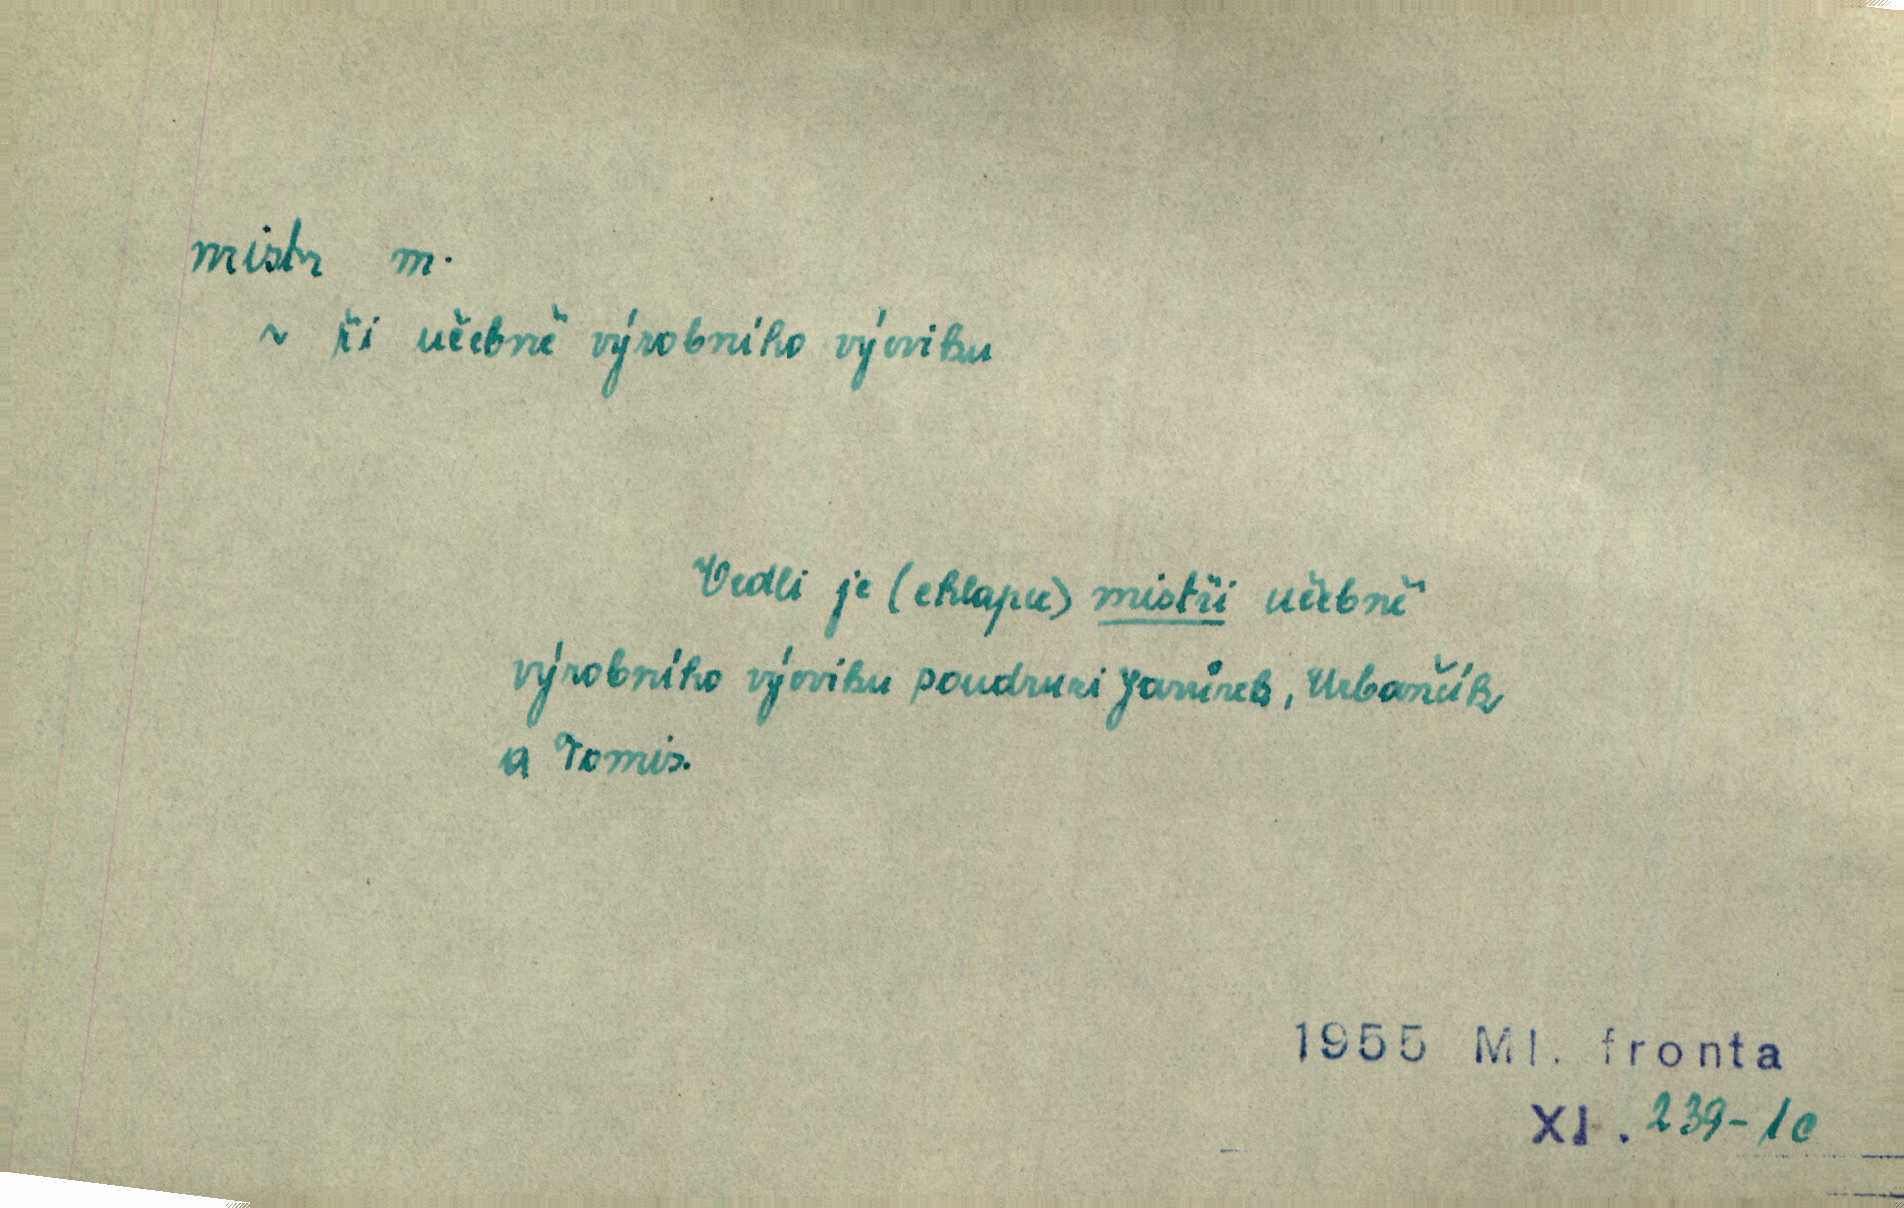 mistr m.
~ ři učebně výrobního výcviku
Vedli je (chlapce) mistři učebně
výrobního výcviku soudruzi Janůrek, Urbančík
a Tomis.
1955 Ml. fronta
XI. 239-1c